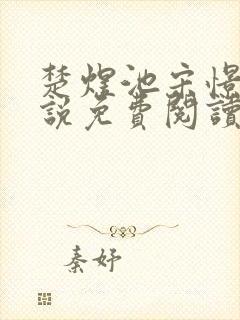 楚煜池宗憬
說免費閱讀
秦妤